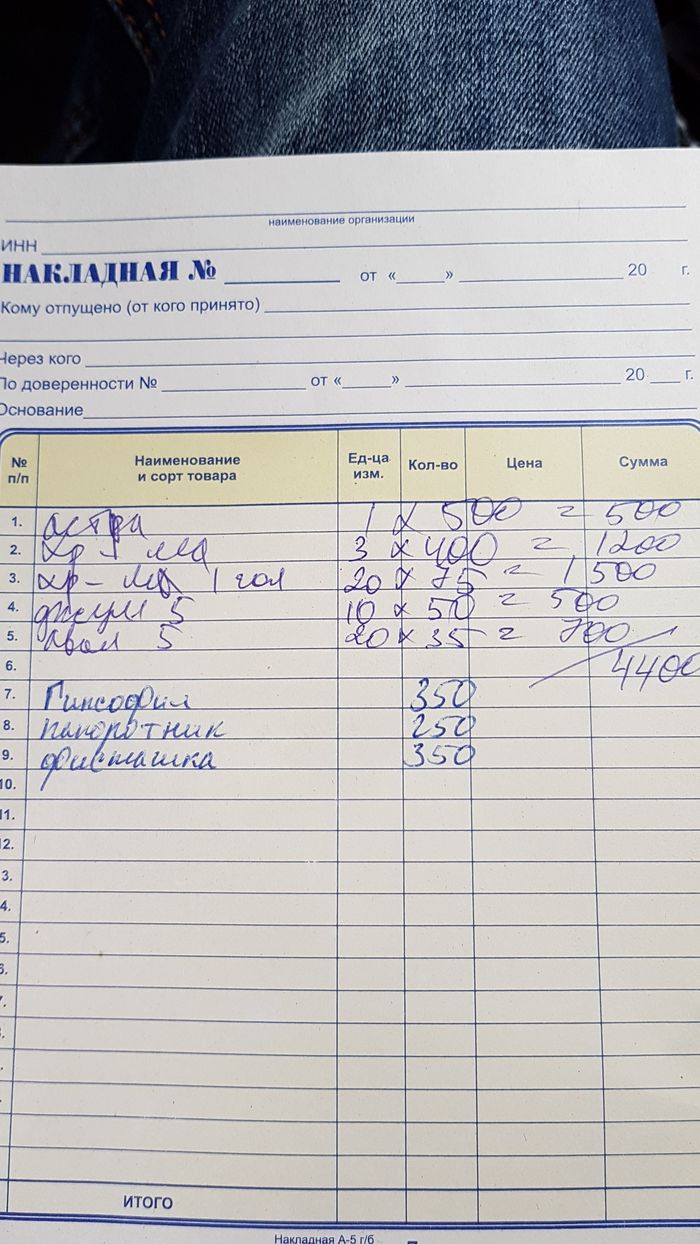 наименование организации
ИНН
НАКЛАДНАЯ № от « » 20 г.
Кому отпущено (от кого принято)
Через кого
По доверенности № от « » 20 г.
Основание
№ п/п Наименование и сорт товара Ед-ца изм. Кол-во Цена Сумма
1. астра 1 x 500 = 500
2. хр-ма 3 x 400 = 1200
3. хр-ма 1 гол 20 x 75 = 1500
4. 5 10 x 50 = 500
5. 5 20 x 35 = 700
6. 4400
7. Гипсофил 350
8. папоротник 250
9. фисташка 350
10.
11.
12.
3.
4.
5.
6.
ИТОГО
Накладная А-5 г/б